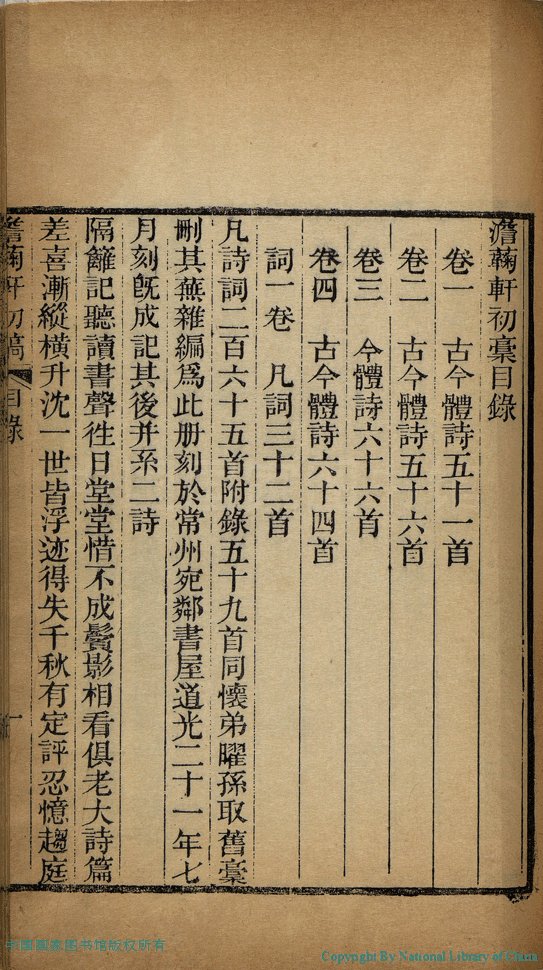 澹蘜軒初稾目錄
卷一 古今體詩五十一首
卷二 古今體詩五十六首
卷三 今體詩六十六首
卷四 古今體詩六十四首
詞一卷 凡詞三十二首
凡詩詞二百六十五首附錄五十九首同懷弟曜孫取舊稾
刪其蕪雜編爲此册刻於常州宛鄰書屋道光二十一年七
月刻旣成記其後并系二詩
隔籬記聽讀書聲徃日堂堂惜不成鬢影相看俱老大詩篇
差喜漸縱橫升沈一世皆浮迹得失千秋有定評忍憶趨庭
澹蘜軒初稿 目錄 一
中国国家图书馆版权所有
Copyright By National Library of China